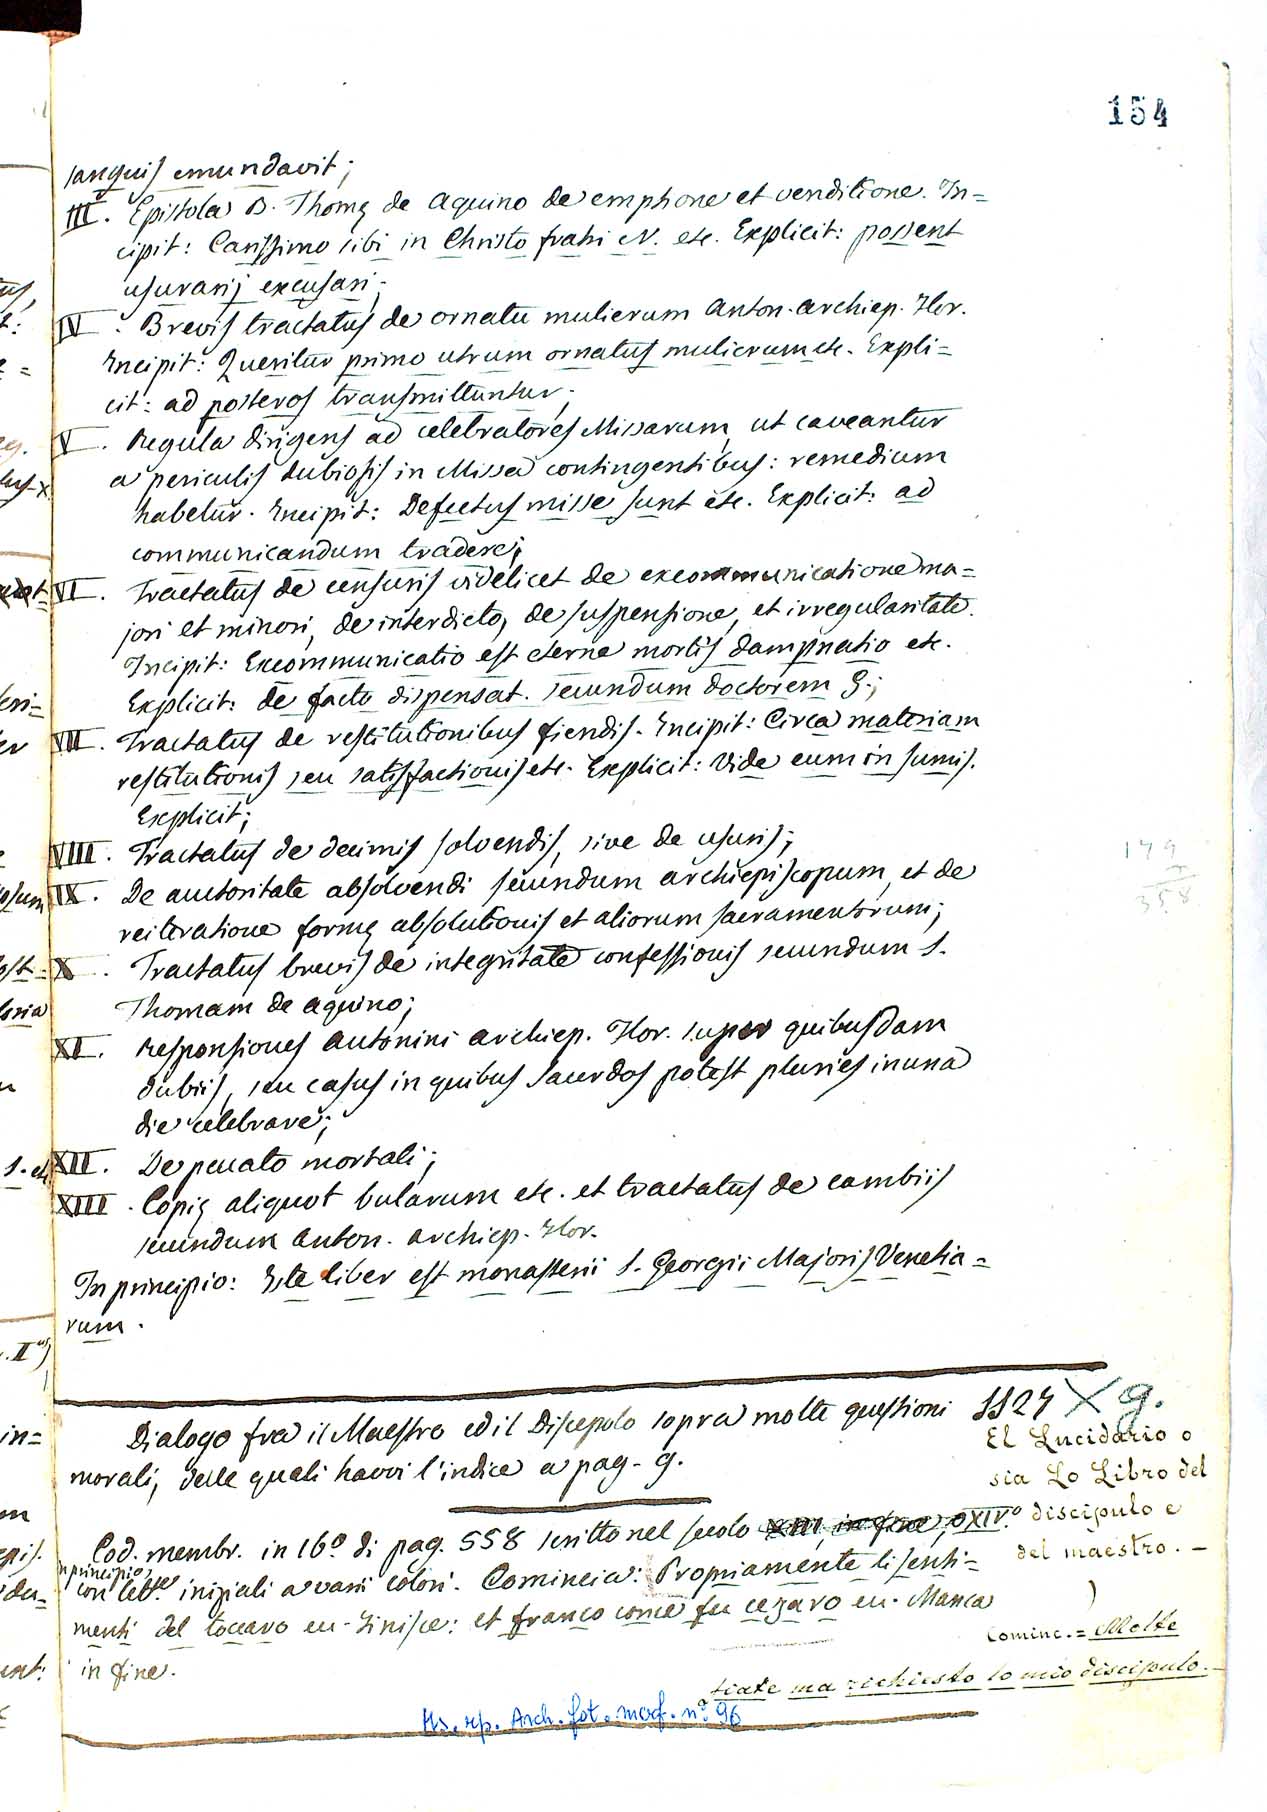 154
sanguis emundavit;
III. Epistola B. Thomę de Aquino de emphone et venditione. In=
cipit: Carissimo sibi in Christo fratri N. etc. Explicit: possent
usurarij excusari;
IV. Brevis tractatus de ornatu mulierum Anton. archiep. Flor.
Incipit: Queritur primo utrum ornatus mulierum etc. Expli=
cit: ad posteros transmittuntur;
V. Regula dirigens ad celebratores Missarum, ut caveantur
a periculis dubiosis in Missa contingentibus: remedium
habetur. Incipit: Defectus misse sunt etc. Explicit: ad
communicandum tradere;
VI. Tractatus de censuris videlicet de excommunicatione ma=
jori et minori, de interdicto, de suspensione, et irregularitate.
Incipit: Excommunicatio est eterne mortis dampnatio etc.
Explicit: de facto dispensat. secundum doctorem G.;
VII. Tractatus de restitutionibus fiendis. Incipit: Circa materiam
restitutionis seu satisfactionis etc. Explicit: Vide eum in sumis.
Explicit;
VIII. Tractatus de decimis solvendis, sive de usuris;
IX. De auctoritate absolvendi secundum archiepiscopum, et de
reiteratione formę absolutionis et aliorum sacramentorum;
X. Tractatus brevis de integritate confessionis secundum S.
Thomam de Aquino;
XI. Responsiones Antonini archiep. Flor. super quibusdam
dubiis, seu casus in quibus Sacerdos potest pluries in una
die celebrare;
XII. De peccato mortali;
XIII. Copię aliquot bularum etc. et tractatus de cambiis
secundum Anton. archiep. Flor.
In principio: Iste liber est monasterii S. Georgii Majoris Venetia=
rum.
179
2
358
Dialogo fra il Maestro ed il Discepolo sopra molte questioni
morali, delle quali havvi l'indice a pag. 9.
Cod. membr. in 16.º di pag. 558 scritto nel secolo XIII, in fine, o XIV.º
in principio,
con lett.e inipiali a varii colori. Comincia: Propriamente li senti=
menti del toccaro en. Finisce: et franco come fu cezaro en. Manca
in fine.
1127 X 9.
El Lucidario o
sia Lo Libro del
discipulo e
del maestro. —
Cominc. = Molte
fiate ma richiesto lo mio discipulo. —
Ms. rip. Arch. fot. marc. nº 96